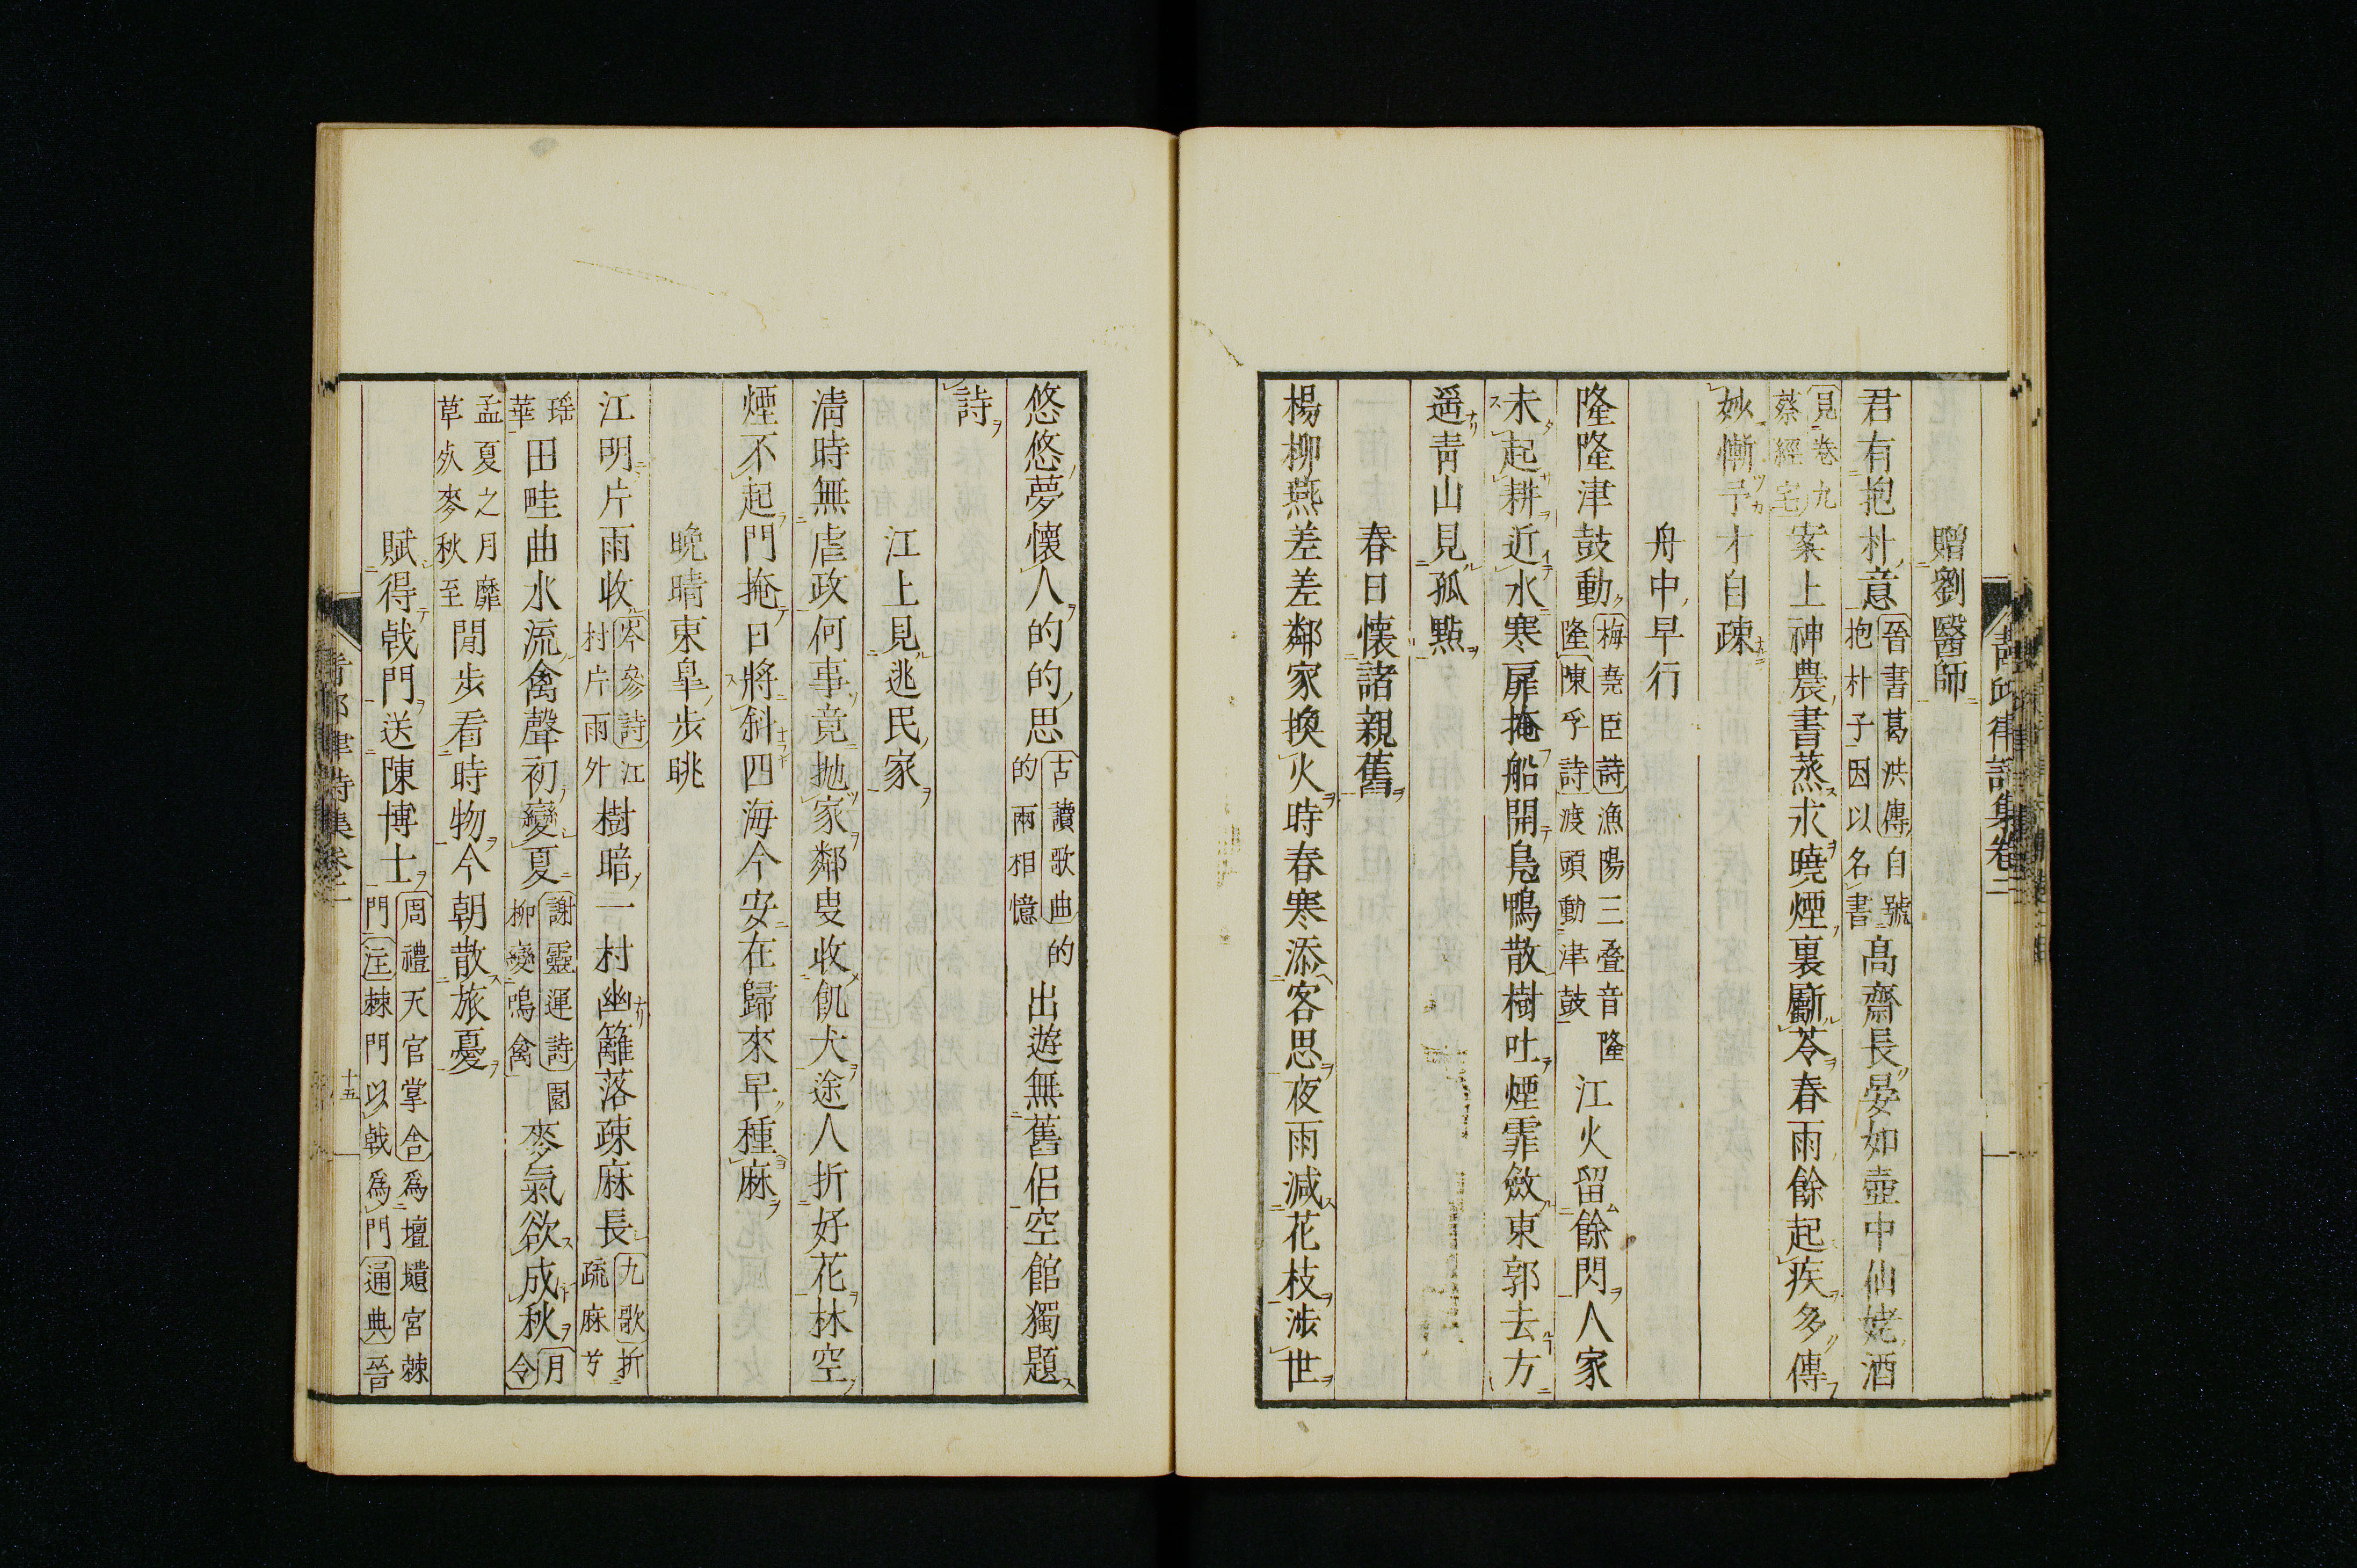 贈劉醫師
君有抱朴意晉書葛洪傳自號抱朴子因以名書髙齋長晏如壺中仙姥酒
見卷九蔡經宅案上神農書蒸朮曉煙裏斸苓春雨餘起疾多傳
妙慚予才自疎
舟中早行
隆隆津鼓動梅堯臣詩漁陽三疊音隆隆陳孚詩渡頭動津鼓江火留餘閃人家
未起耕近水寒扉掩船開鳧鴨散樹吐煙霏斂東郭去方
遥青山見孤點
春日懐諸親舊
楊柳燕差差鄰家換火時春寒添客思夜雨減花枝涉世
悠悠夢懷人的的思古讀歌曲的的兩相憶出遊無舊侶空館獨題
詩
江上見逃民家
清時無虐政何事竟抛家鄰叟收飢犬途人折好花林空
煙不起門掩日將斜四海今安在歸來早種麻
晩晴東皐步眺
江明片雨收岑參詩江村片雨外樹暗一村幽籬落疎麻長九歌折疏麻兮
瑶華田畦曲水流禽聲初變夏謝靈運詩園柳變鳴禽麥氣欲成秋月令
孟夏之月靡草死麥秋至閒步看時物今朝散旅憂
賦得戟門送陳博士周禮天官掌舍爲壇壝宮棘門注棘門以戟爲門通典晉
青邱律詩集卷二
十五